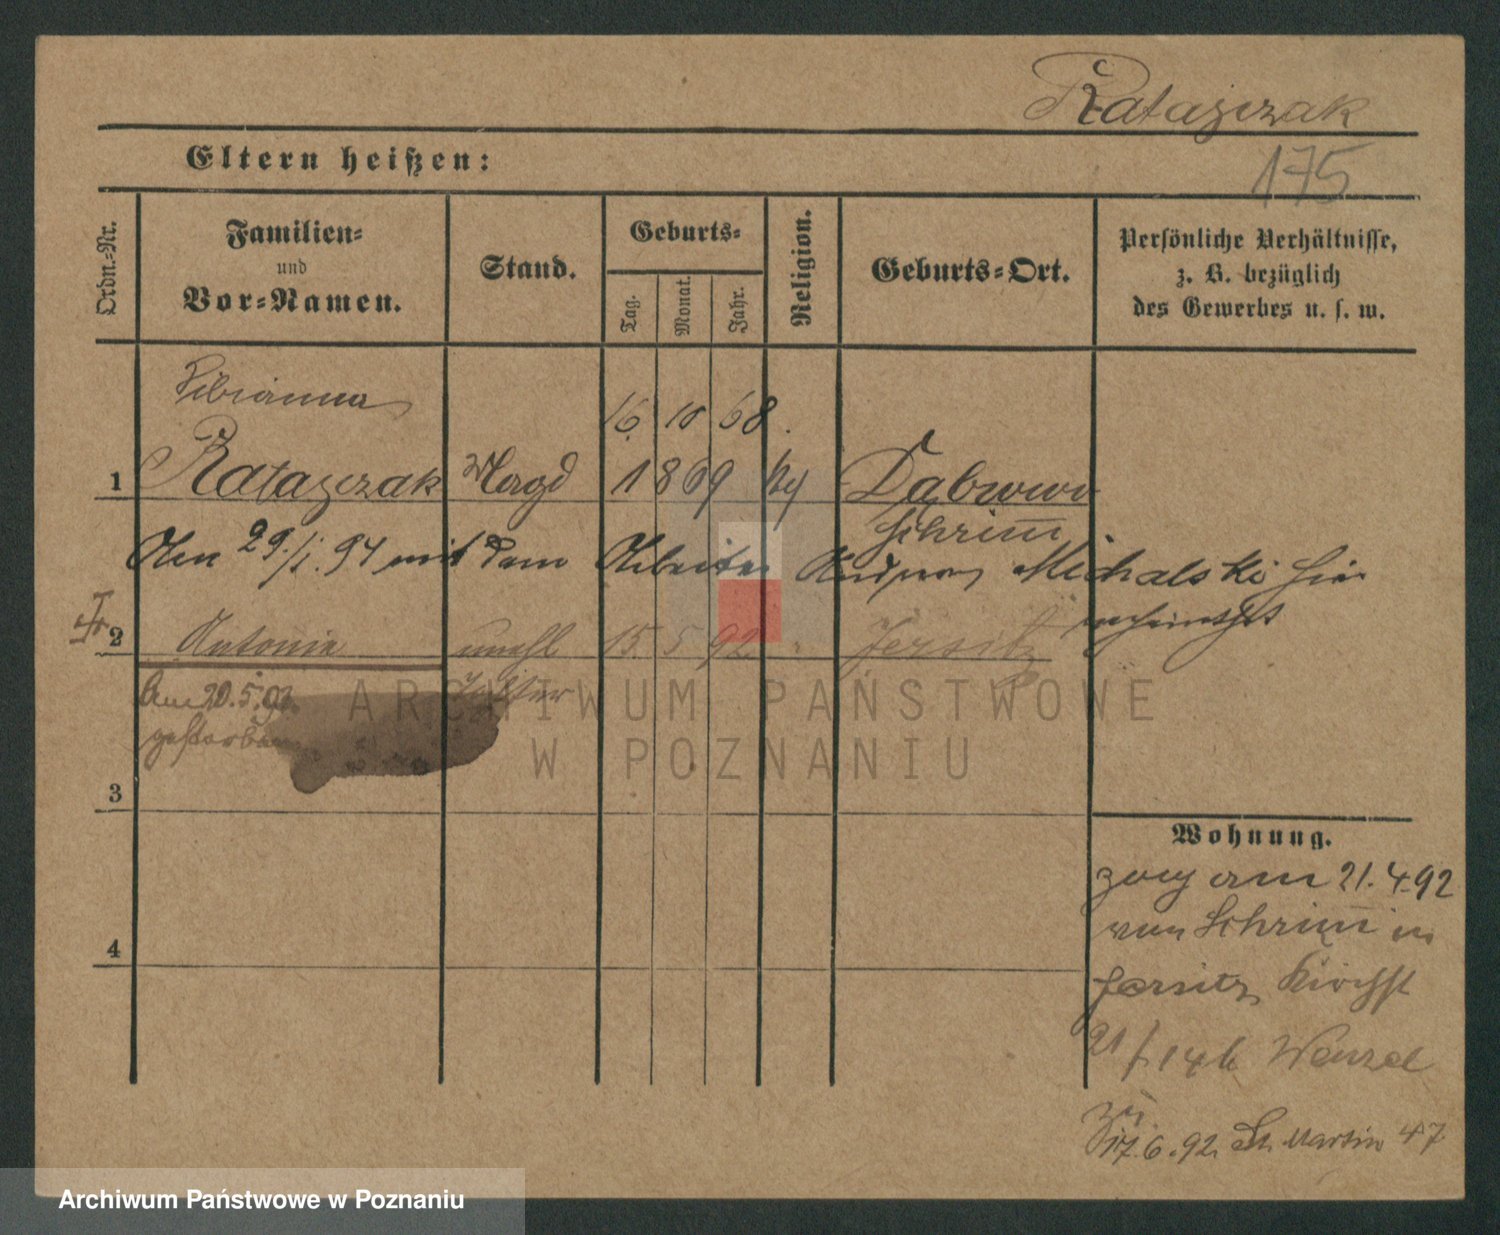 Ratajczak
175
Eltern heißen:
Ordn.-Nr.
Familien-
und
Vor-Namen.
Stand.
Geburts-
Tag.
Monat.
Jahr.
Religion.
Geburts-Ort.
Persönliche Verhältnisse,
z. B. bezüglich
des Gewerbes u. s. w.
Bibianna
16. 10 68.
1 Ratajczak Magd 1869 Dąbrowo
Schrim̅
Den 29./1. 94 mit dem Arbeiter Andreas Michalski hier
verheirathet
2 Antonia unehl 15. 5 92 Jersitz
Am 20.5.92 Tochter
gestorben
3
4
Wohnung.
zog am 21.4.92
von Schrim̅ in
Jersitz, Kirchst
21 Wenzel
17.6.92. St. Martin 47
ARCHIWUM PAŃSTWOWE
W POZNANIU
Archiwum Państwowe w Poznaniu